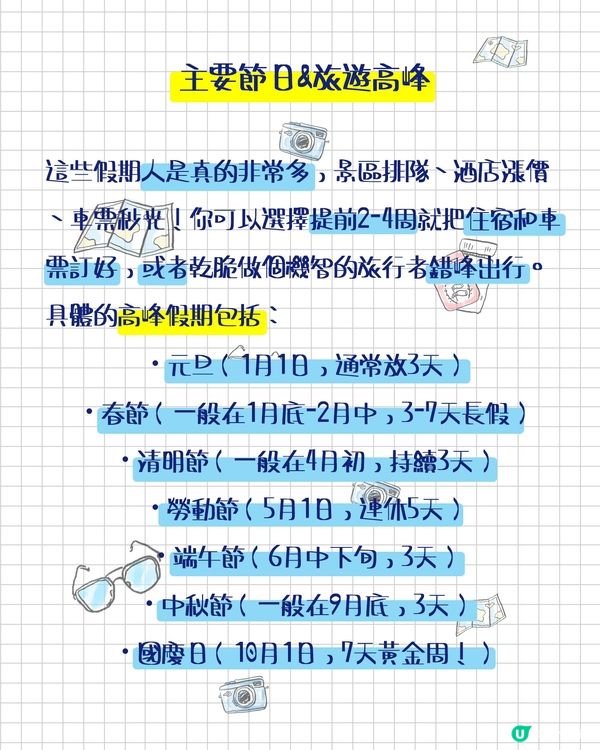 主要節日&旅遊高峰
這些假期人是真的非常多，景區排隊、酒店漲價
、車票秒光！你可以選擇提前2-4周就把住宿和車
票訂好，或者乾脆做個機智的旅行者錯峰出行。
具體的高峰假期包括：
·元旦（1月1日，通常放3天）
·春節（一般在1月底-2月中，3-7天長假）
·清明節（一般在4月初，持續3天）
·勞動節（5月1日，連休5天）
·端午節（6月中下旬，3天）
·中秋節（一般在9月底，3天）
·國慶日（10月1日，7天黃金周！）
U